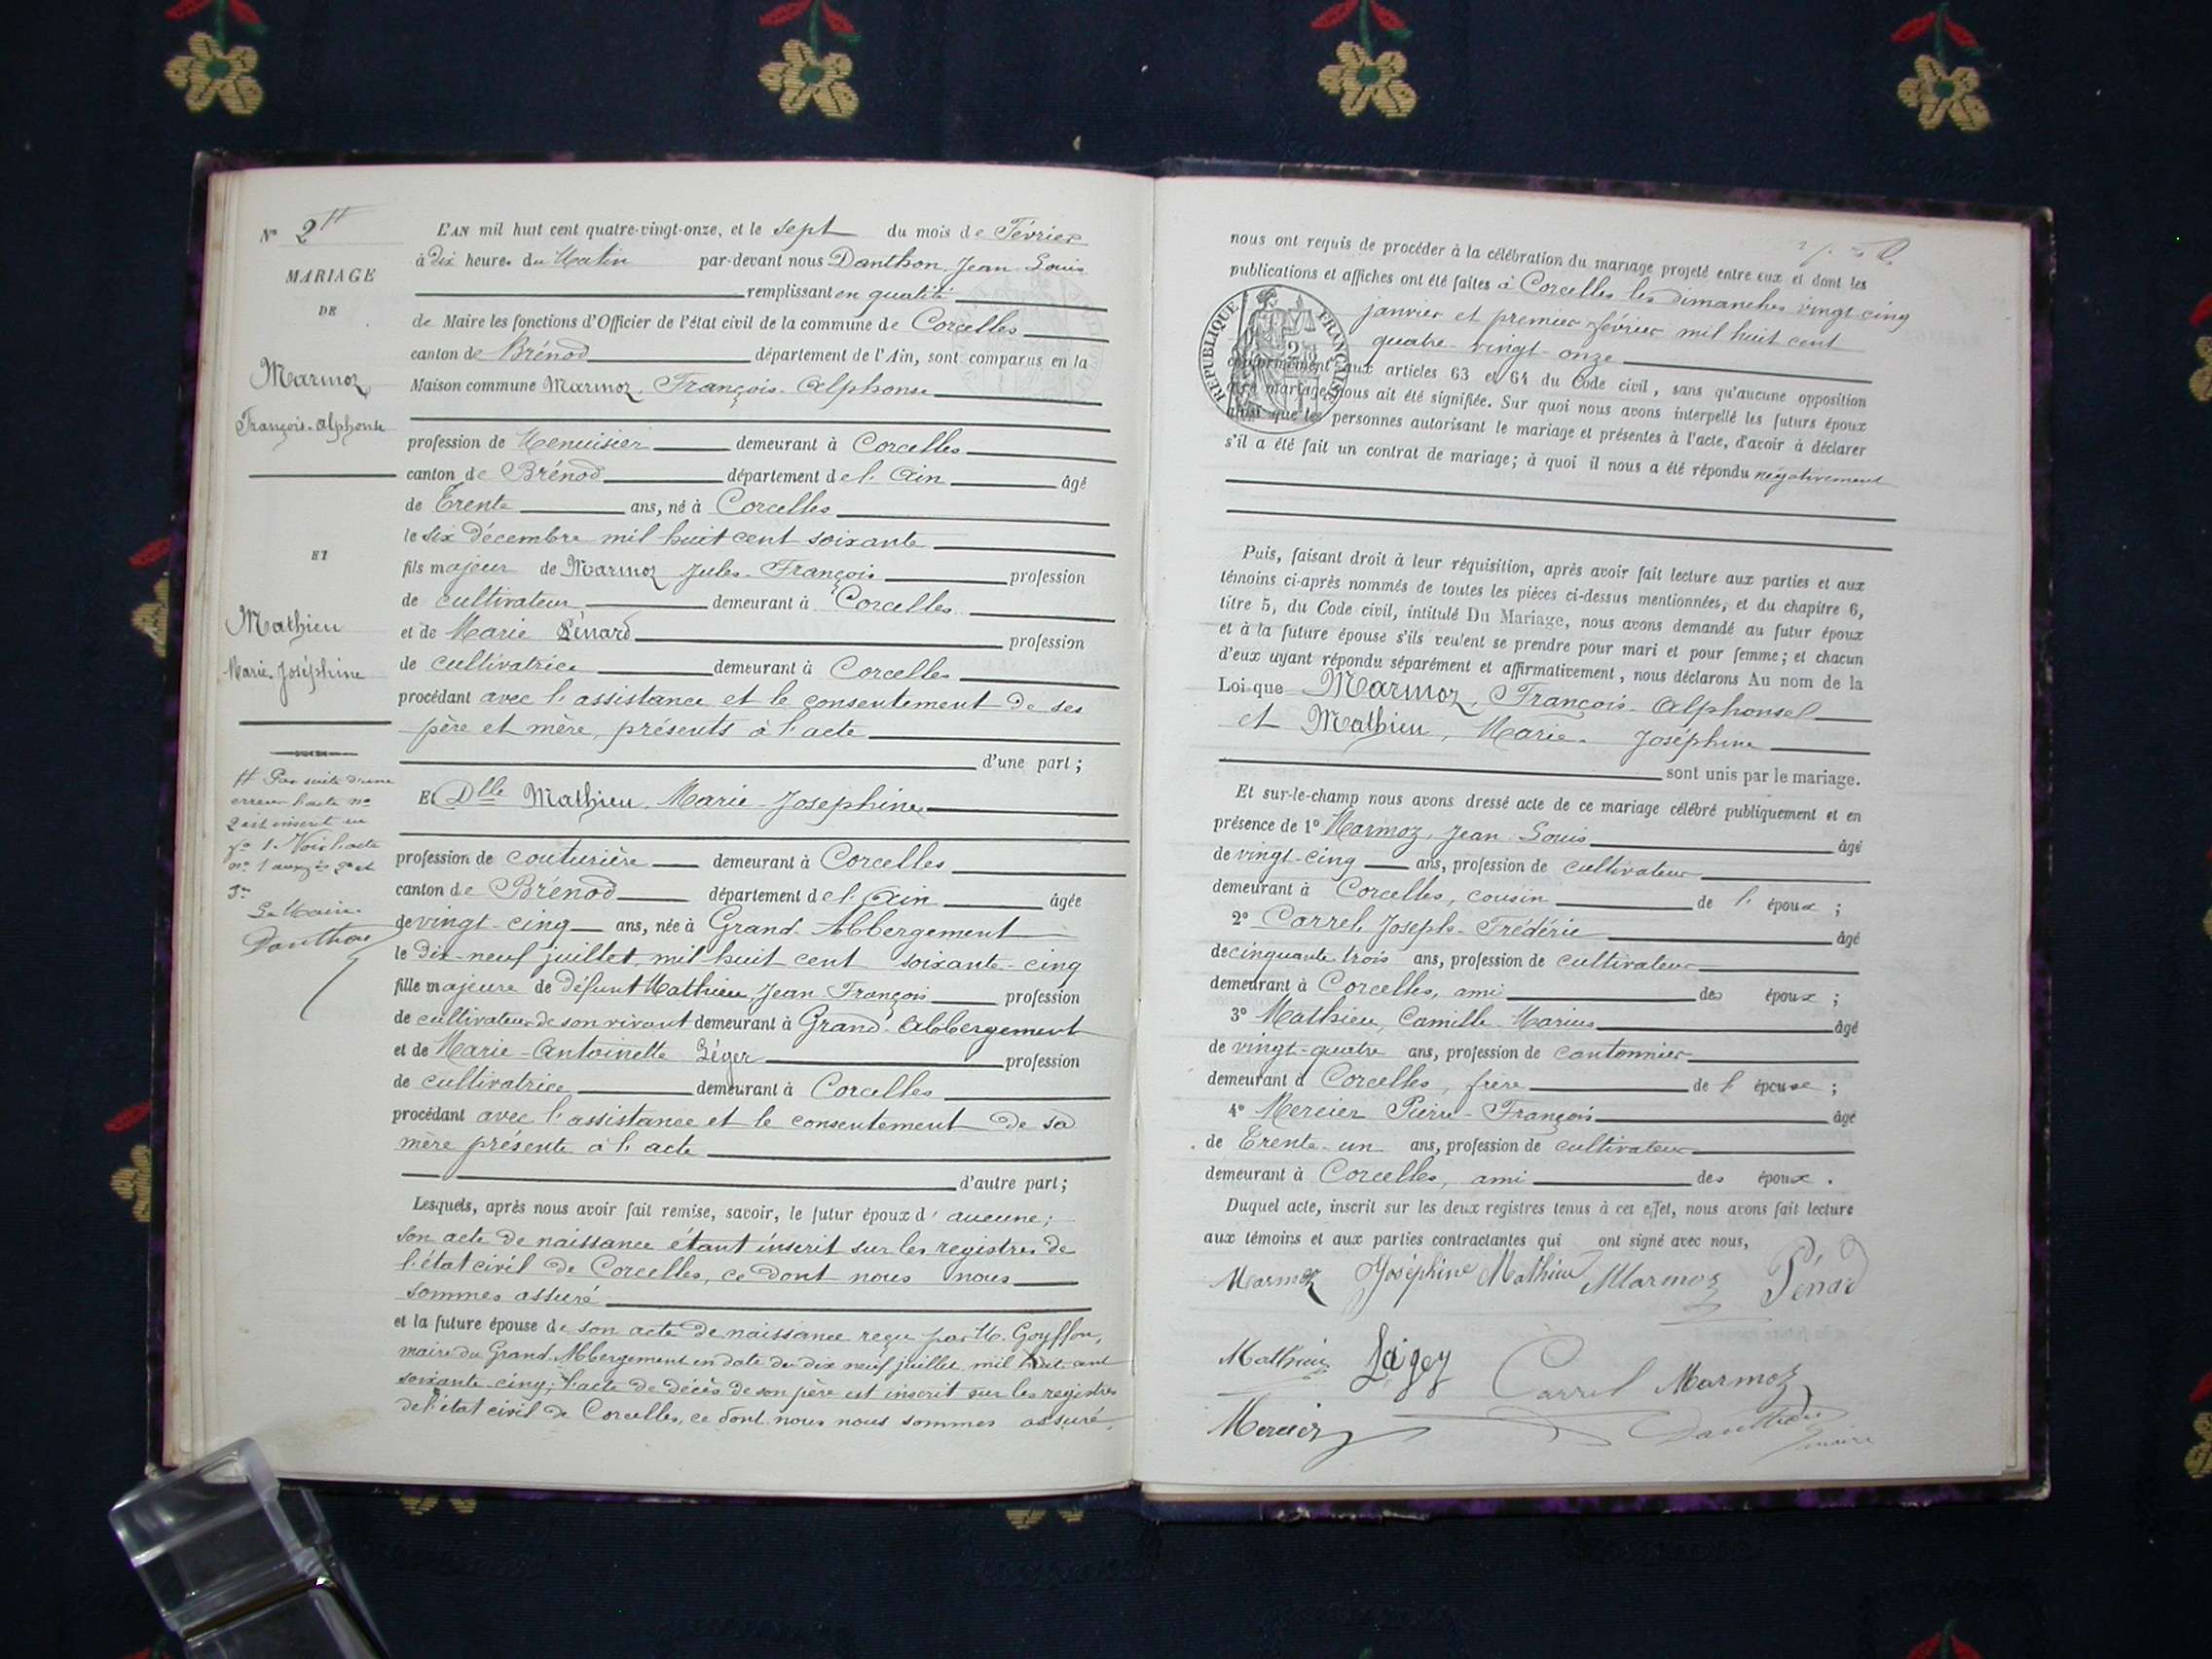 N° 2
MARIAGE
DE
Marmoz
François-Alphonse
ET
Mathieu
Marie-Joséphine
Par suite d'une
erreur l'acte n°
2 est inscrit en
1. Voir l'acte
n° 1 aux
Le Maire
Danthon
L'AN mil huit cent quatre-vingt-onze, et le sept du mois de Février
à dix heures du Matin par-devant nous Danthon, Jean Louis
remplissant en qualité
de Maire les fonctions d'Officier de l'état civil de la commune de Corcelles
canton de Brénod département de l'Ain, sont comparus en la
Maison commune Marmoz, François-Alphonse
profession de Menuisier demeurant à Corcelles
canton de Brénod département de l'Ain âgé
de Trente ans, né à Corcelles
le six décembre mil huit cent soixante
fils majeur de Marmoz Jules-François profession
de cultivateur demeurant à Corcelles
et de Marie Pénard profession
de cultivatrice demeurant à Corcelles
procédant avec l'assistance et le consentement de ses
père et mère, présents à l'acte
d'une part ;
Et Dlle Mathieu, Marie-Josephine
profession de couturière demeurant à Corcelles
canton de Brénod département de l'Ain âgée
de vingt-cinq ans, née à Grand-Abbergement
le dix-neuf juillet mil huit cent soixante-cinq
fille majeure de défunt Mathieu, Jean-François profession
de cultivateur de son vivant demeurant à Grand-Abbergement
et de Marie-Antoinette Léger profession
de cultivatrice demeurant à Corcelles
procédant avec l'assistance et le consentement de sa
mère présente à l'acte
d'autre part ;
Lesquels, après nous avoir fait remise, savoir, le futur époux d'aucune ;
son acte de naissance étant inscrit sur les registres de
l'état civil de Corcelles, ce dont nous nous
sommes assuré
et la future épouse de son acte de naissance reçu par M. Goyffon,
maire du Grand-Abbergement en date du dix neuf juillet mil huit cent
soixante-cinq ; l'acte de décès de son père est inscrit sur les registres
de l'état civil de Corcelles, ce dont nous nous sommes assuré.
nous ont requis de procéder à la célébration du mariage projeté entre eux et dont les
publications et affiches ont été faites à Corcelles les dimanches vingt cinq
janvier et premier février mil huit cent
quatre-vingt-onze
REPUBLIQUE FRANÇAISE
conformément aux articles 63 et 64 du Code civil, sans qu'aucune opposition
mariage nous ait été signifiée. Sur quoi nous avons interpellé les futurs époux
ainsi que les personnes autorisant le mariage et présentes à l'acte, d'avoir à déclarer
s'il a été fait un contrat de mariage ; à quoi il nous a été répondu négativement
Puis, faisant droit à leur réquisition, après avoir fait lecture aux parties et aux
témoins ci-après nommés de toutes les pièces ci-dessus mentionnées, et du chapitre 6,
titre 5, du Code civil, intitulé Du Mariage, nous avons demandé au futur époux
et à la future épouse s'ils veulent se prendre pour mari et pour femme ; et chacun
d'eux ayant répondu séparément et affirmativement, nous déclarons Au nom de la
Loi que Marmoz, François-Alphonse
et Mathieu, Marie-Joséphine
sont unis par le mariage.
Et sur-le-champ nous avons dressé acte de ce mariage célébré publiquement et en
présence de 1° Marmoz, Jean Louis âgé
de vingt-cinq ans, profession de cultivateur
demeurant à Corcelles, cousin de l'époux ;
2° Carrel, Joseph-Frédéric âgé
de cinquante trois ans, profession de cultivateur
demeurant à Corcelles, ami des époux ;
3° Mathieu, Camille-Marius âgé
de vingt-quatre ans, profession de cantonnier
demeurant à Corcelles, frère de l'épouse ;
4° Mercier Pierre-François âgé
de Trente-un ans, profession de cultivateur
demeurant à Corcelles, ami des époux.
Duquel acte, inscrit sur les deux registres tenus à cet effet, nous avons fait lecture
aux témoins et aux parties contractantes qui ont signé avec nous,
Marmoz Joséphine Mathieu Marmoz Pénard
Mathieu Carrel Marmoz
Mercier Danthon
maire